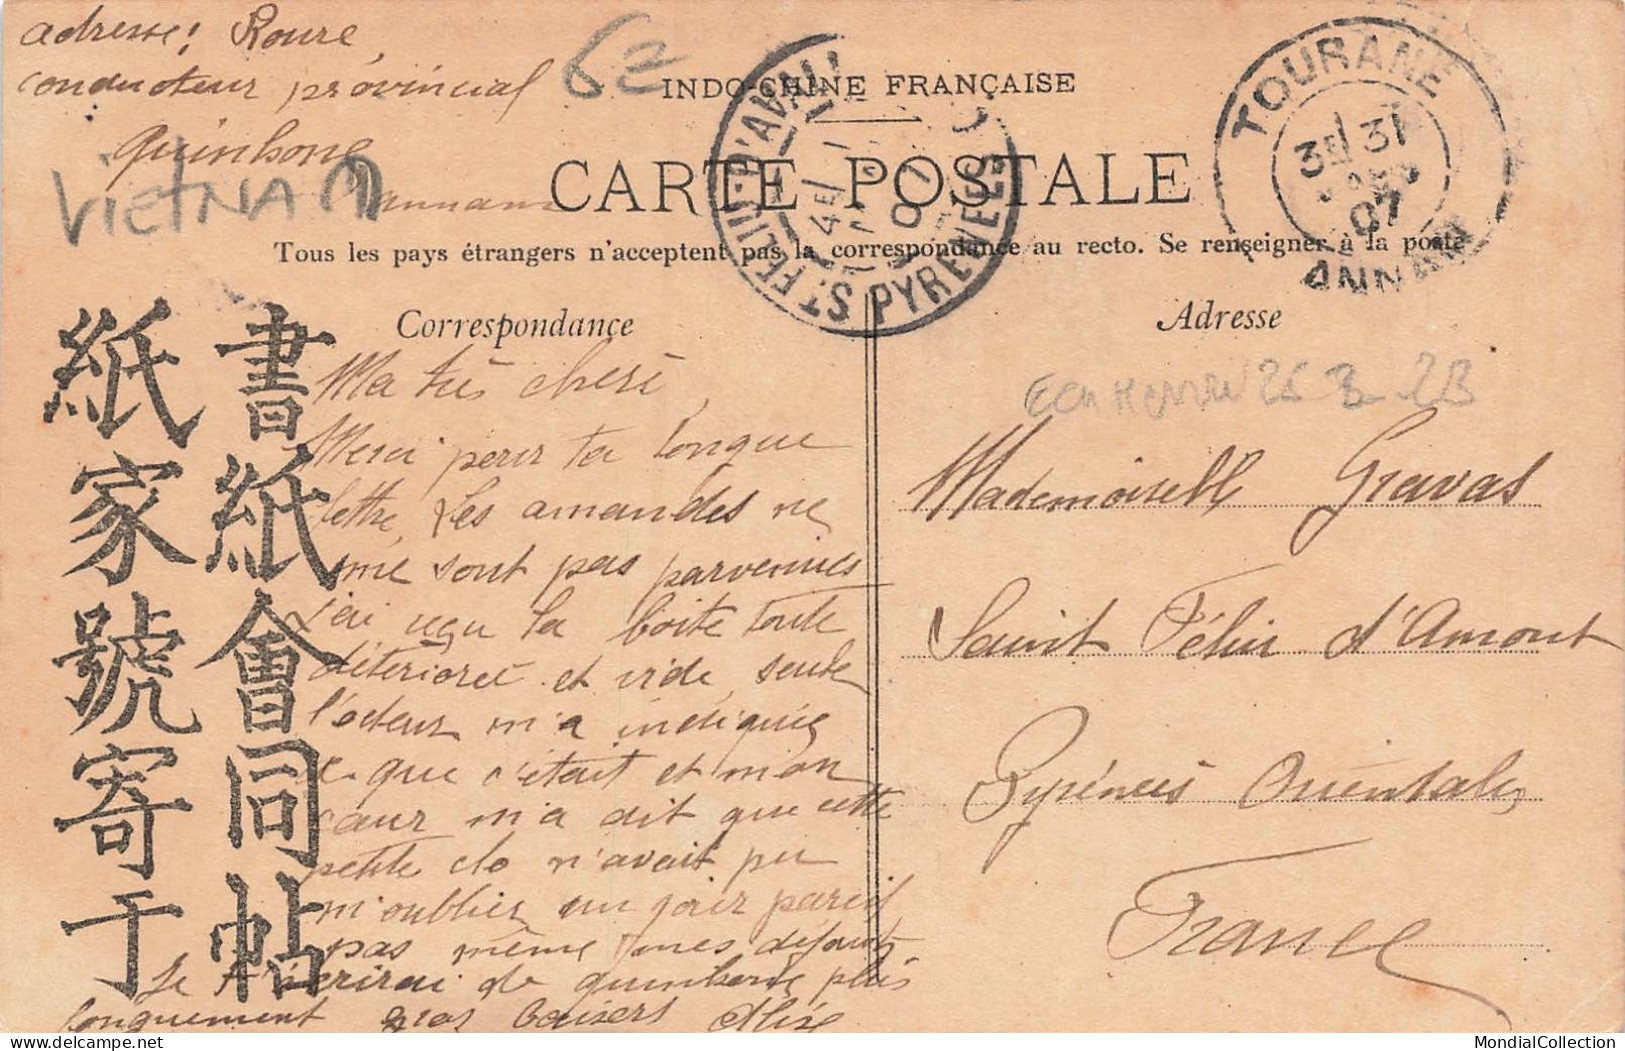 adresse! Roure
conducteur provincial
Quinhone
Annam
VIETNAM
INDO-CHINE FRANÇAISE
CARTE POSTALE
Tous les pays étrangers n'acceptent pas la correspondance au recto. Se renseigner à la poste
TOURANE
31
07
ANNAM
ST FELIU-D'AVALL
PYRENEES
書紙會同帖
紙家號寄于
Correspondance
Ma très cheri
Merci pour ta longue
lettre, Les amandes ne
me sont pas parvenues
J'ai reçu la boite toute
détérioreé et vide, seule
l'odeur m'a indiquée
ce que c'était et mon
cœur m'a dit que cette
petite clo n'avait pu
m'oublier un jour pareil
pas même mes défauts
Je t'écrirai de quinhone plus
longuement gros baisers Alix
Adresse
Mademoiselle Gravas
Saint Féliu d'Amont
Pyrénées Orientales
France
MondialCollection